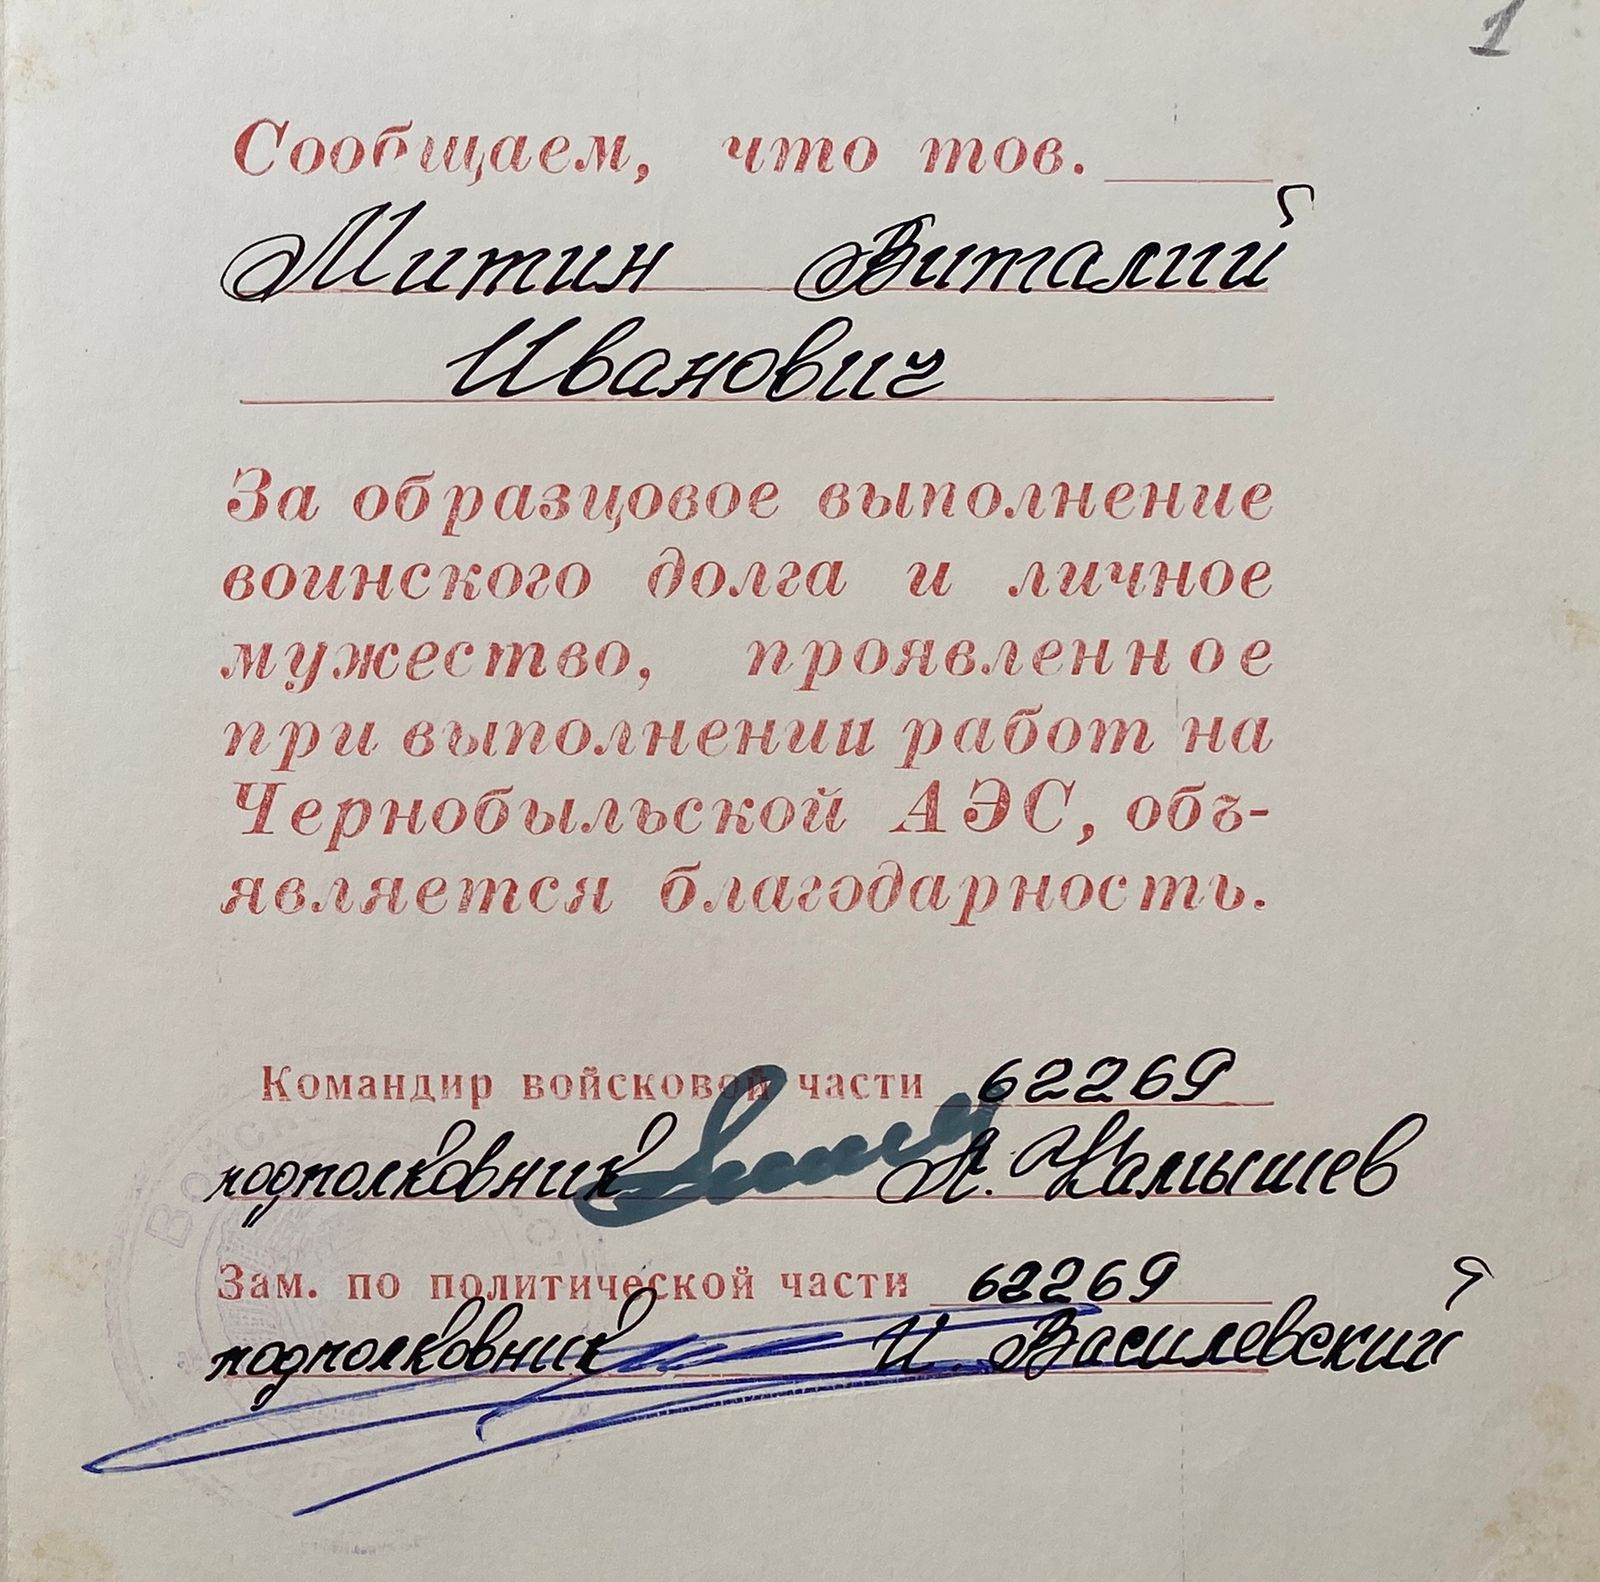 1
Сообщаем, что тов.
Митин Виталий
Иванович
За образцовое выполнение
воинского долга и личное
мужество, проявленное
при выполнении работ на
Чернобыльской АЭС, объ-
является благодарность.
Командир войсковой части 62269
подполковник А. Камышев
Зам. по политической части 62269
подполковник И. Василевский